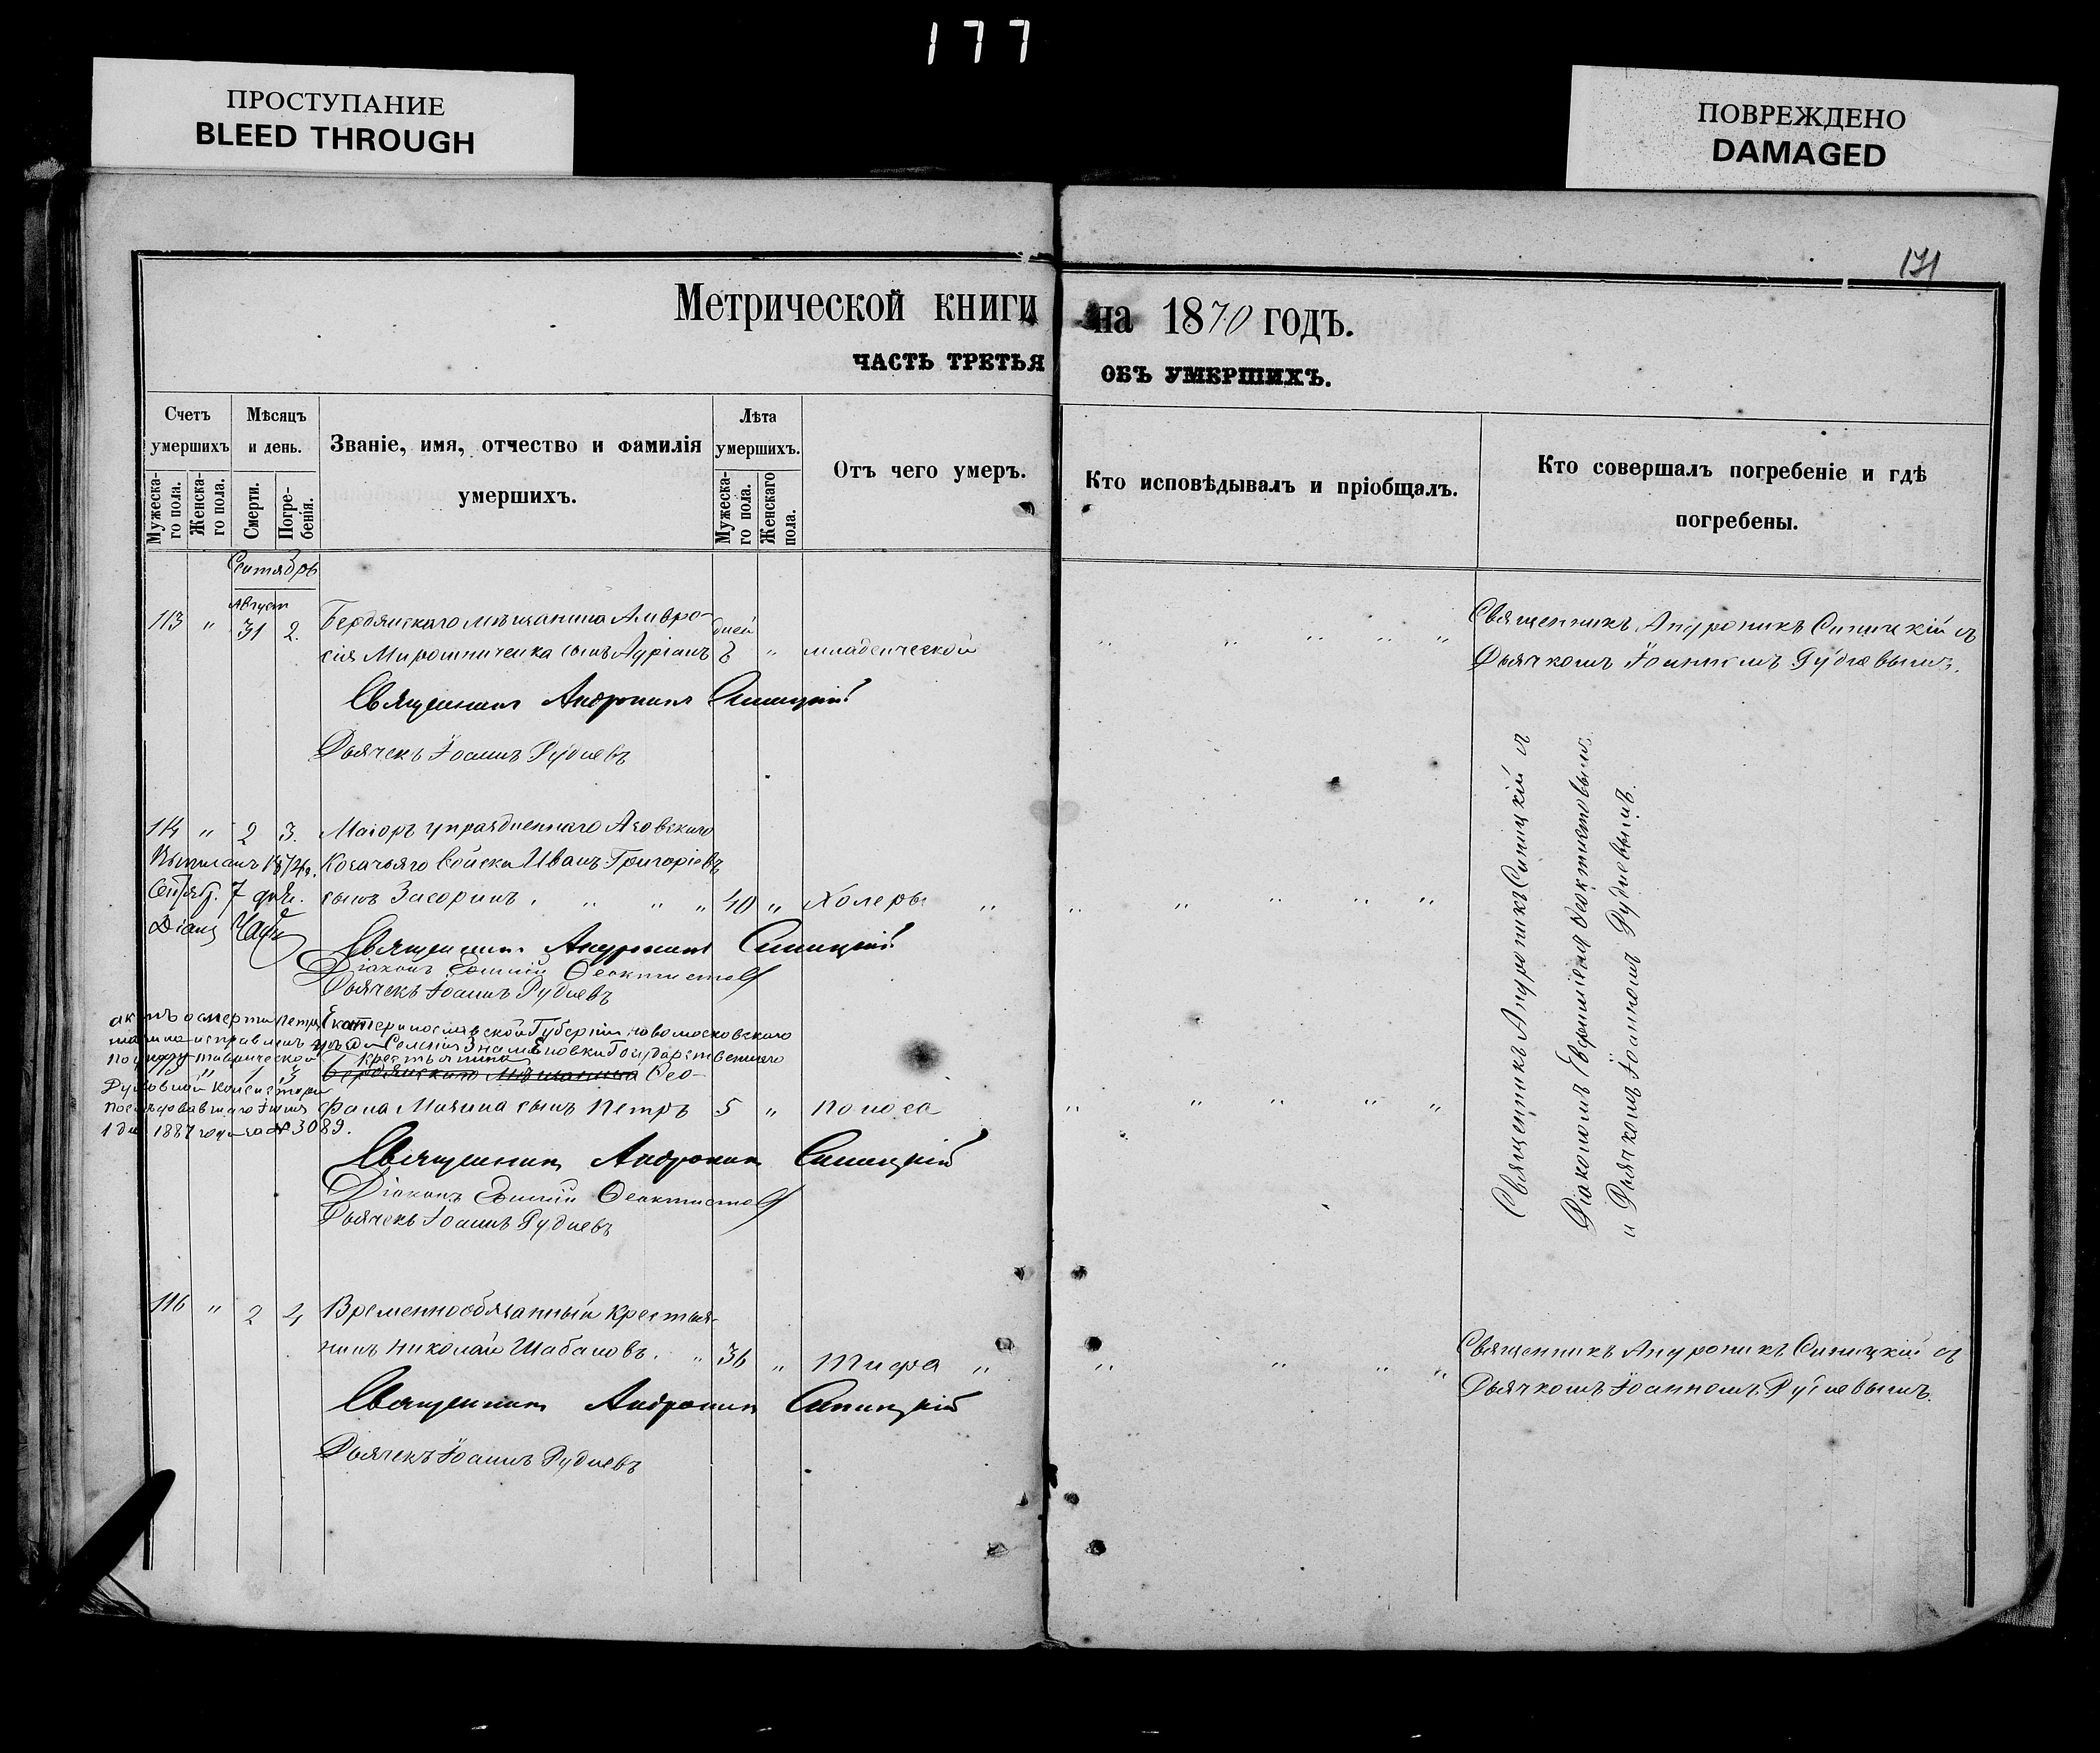 177
ПРОСТУПАНИЕ
BLEED THROUGH
ПОВРЕЖДЕНО
DAMAGED
171
Метрической книги на 1870 годъ.
ЧАСТЬ ТРЕТЬЯ ОБЪ УМЕРШИХЪ.
Счетъ умершихъ
Мужеска-го пола.
Женска-го пола.
Мѣсяцъ и день.
Смерти.
Погре-бенія.
Званіе, имя, отчество и фамилія умершихъ.
Лѣта умершихъ.
Мужеска-го пола.
Женскаго пола.
Отъ чего умеръ.
Кто исповѣдывалъ и пріобщалъ.
Кто совершалъ погребеніе и гдѣ погребены.
Сентябрь
Август
113 " 31 2. Бердянскаго мѣщанина Амвро-
дней
сія Мирошниченка сынъ Адріанъ " младенческой
Священникъ Андроникъ Синицкій съ
Дьячкомъ Іоанномъ Рудневымъ.
Священникъ Андроникъ Синицкій
Дьячекъ Іоаннъ Рудневъ
114 " 2 3. Маіоръ упраздненнаго Азовскаго
Козачьяго войска Иванъ Григоріевъ
сынъ Засоринъ 40 " Холеры
Сентяб. 7 дня.
Священникъ Андроникъ Синицкій
Діаконъ Феоктистов
Дьячекъ Іоаннъ Рудневъ
Священникъ Андроникъ Синицкій съ
Діакономъ Феоктистовымъ
и Дьячкомъ Іоанномъ Рудневымъ.
актъ о смерти Петра
исправленъ
по указу таврической
Духовной Консисторіи
послѣдовавшаго
1887 года за № 3089.
Екатеринославской Губерніи, новомосковскаго
уѣзда Селенія Знаменовки Государственнаго
крестьянина
Бердянскаго Мѣщанина Фео-
фана Мазина сынъ Петръ 5 " поноса
Священникъ Андроникъ Синицкій
Діаконъ Феоктистов
Дьячекъ Іоаннъ Рудневъ
116 " 2 4 Временнообязанный крестья-
нинъ Николай Шабановъ. " 36 " тифа "
Священникъ Андроникъ Синицкій съ
Дьячкомъ Іоанномъ Рудневымъ.
Священникъ Андроникъ Синицкій
Дьячекъ Іоаннъ Рудневъ